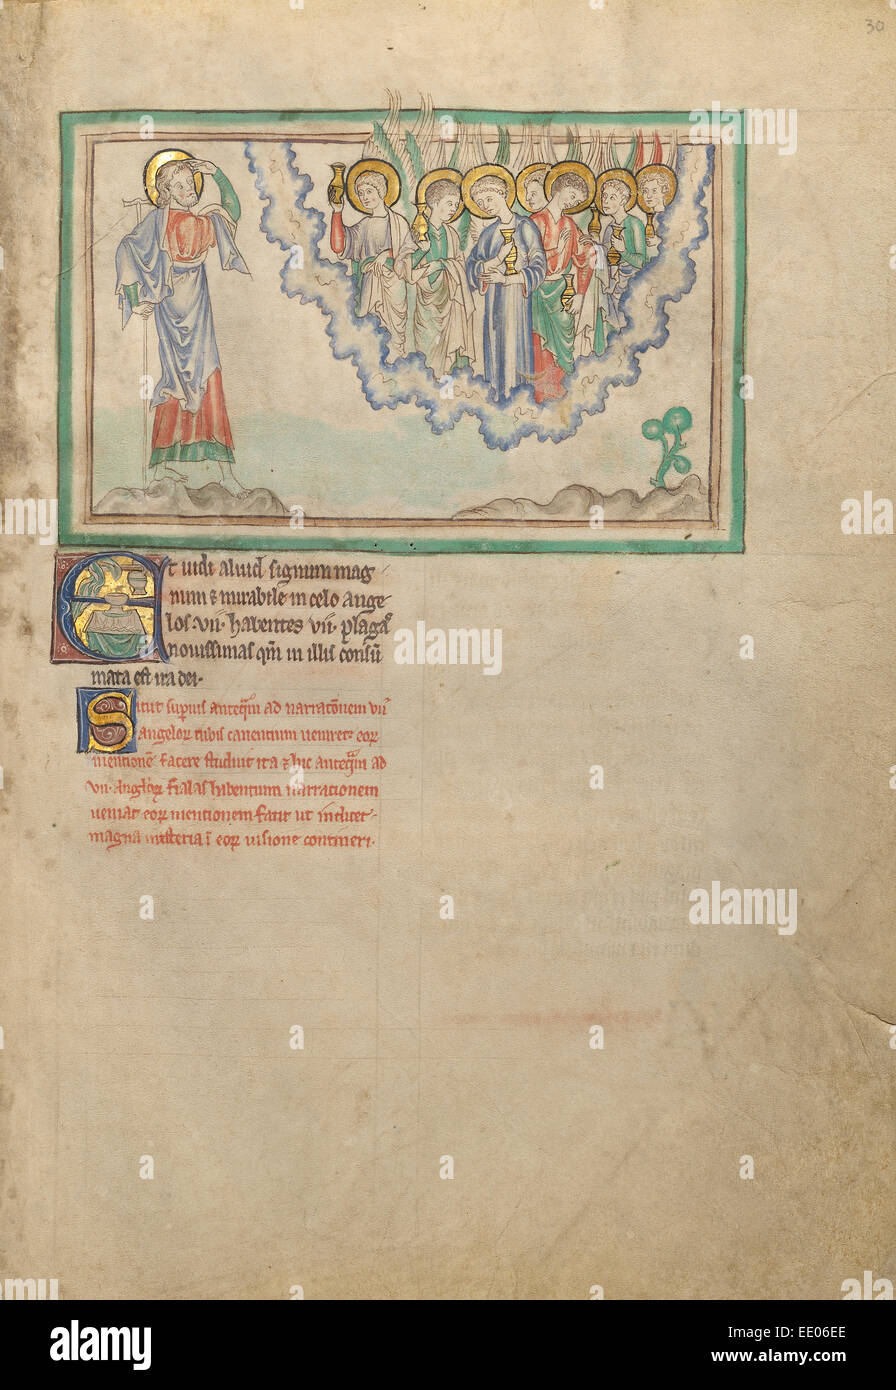 30
Et vidi aliud signum mag
num & mirabile in celo ange
los vii. habentes vii. plagas
novissimas qm in illis consu
mata est ira dei.
Sicut superius anteqm ad narrationem vii
angelor tubis canentium veniret eor
mentione facere studuit ita & hic anteqm ad
vii. anglor fialas habentium narrationem
veniat eor mentionem facit ut indicet
magna misteria i eor visione contineri.
a alamy stock photo
EE06EE
www.alamy.com